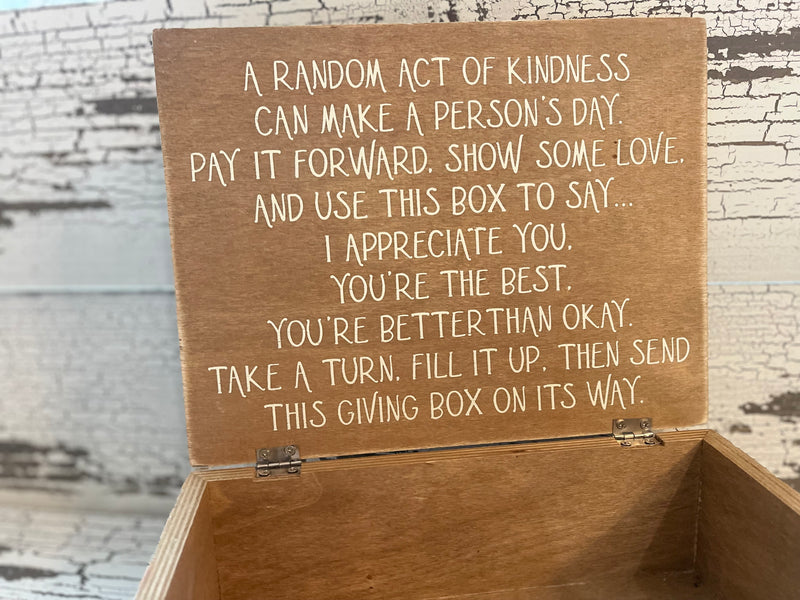 A RANDOM ACT OF KINDNESS
CAN MAKE A PERSON'S DAY.
PAY IT FORWARD, SHOW SOME LOVE,
AND USE THIS BOX TO SAY...
I APPRECIATE YOU,
YOU'RE THE BEST,
YOU'RE BETTERTHAN OKAY.
TAKE A TURN, FILL IT UP, THEN SEND
THIS GIVING BOX ON ITS WAY.